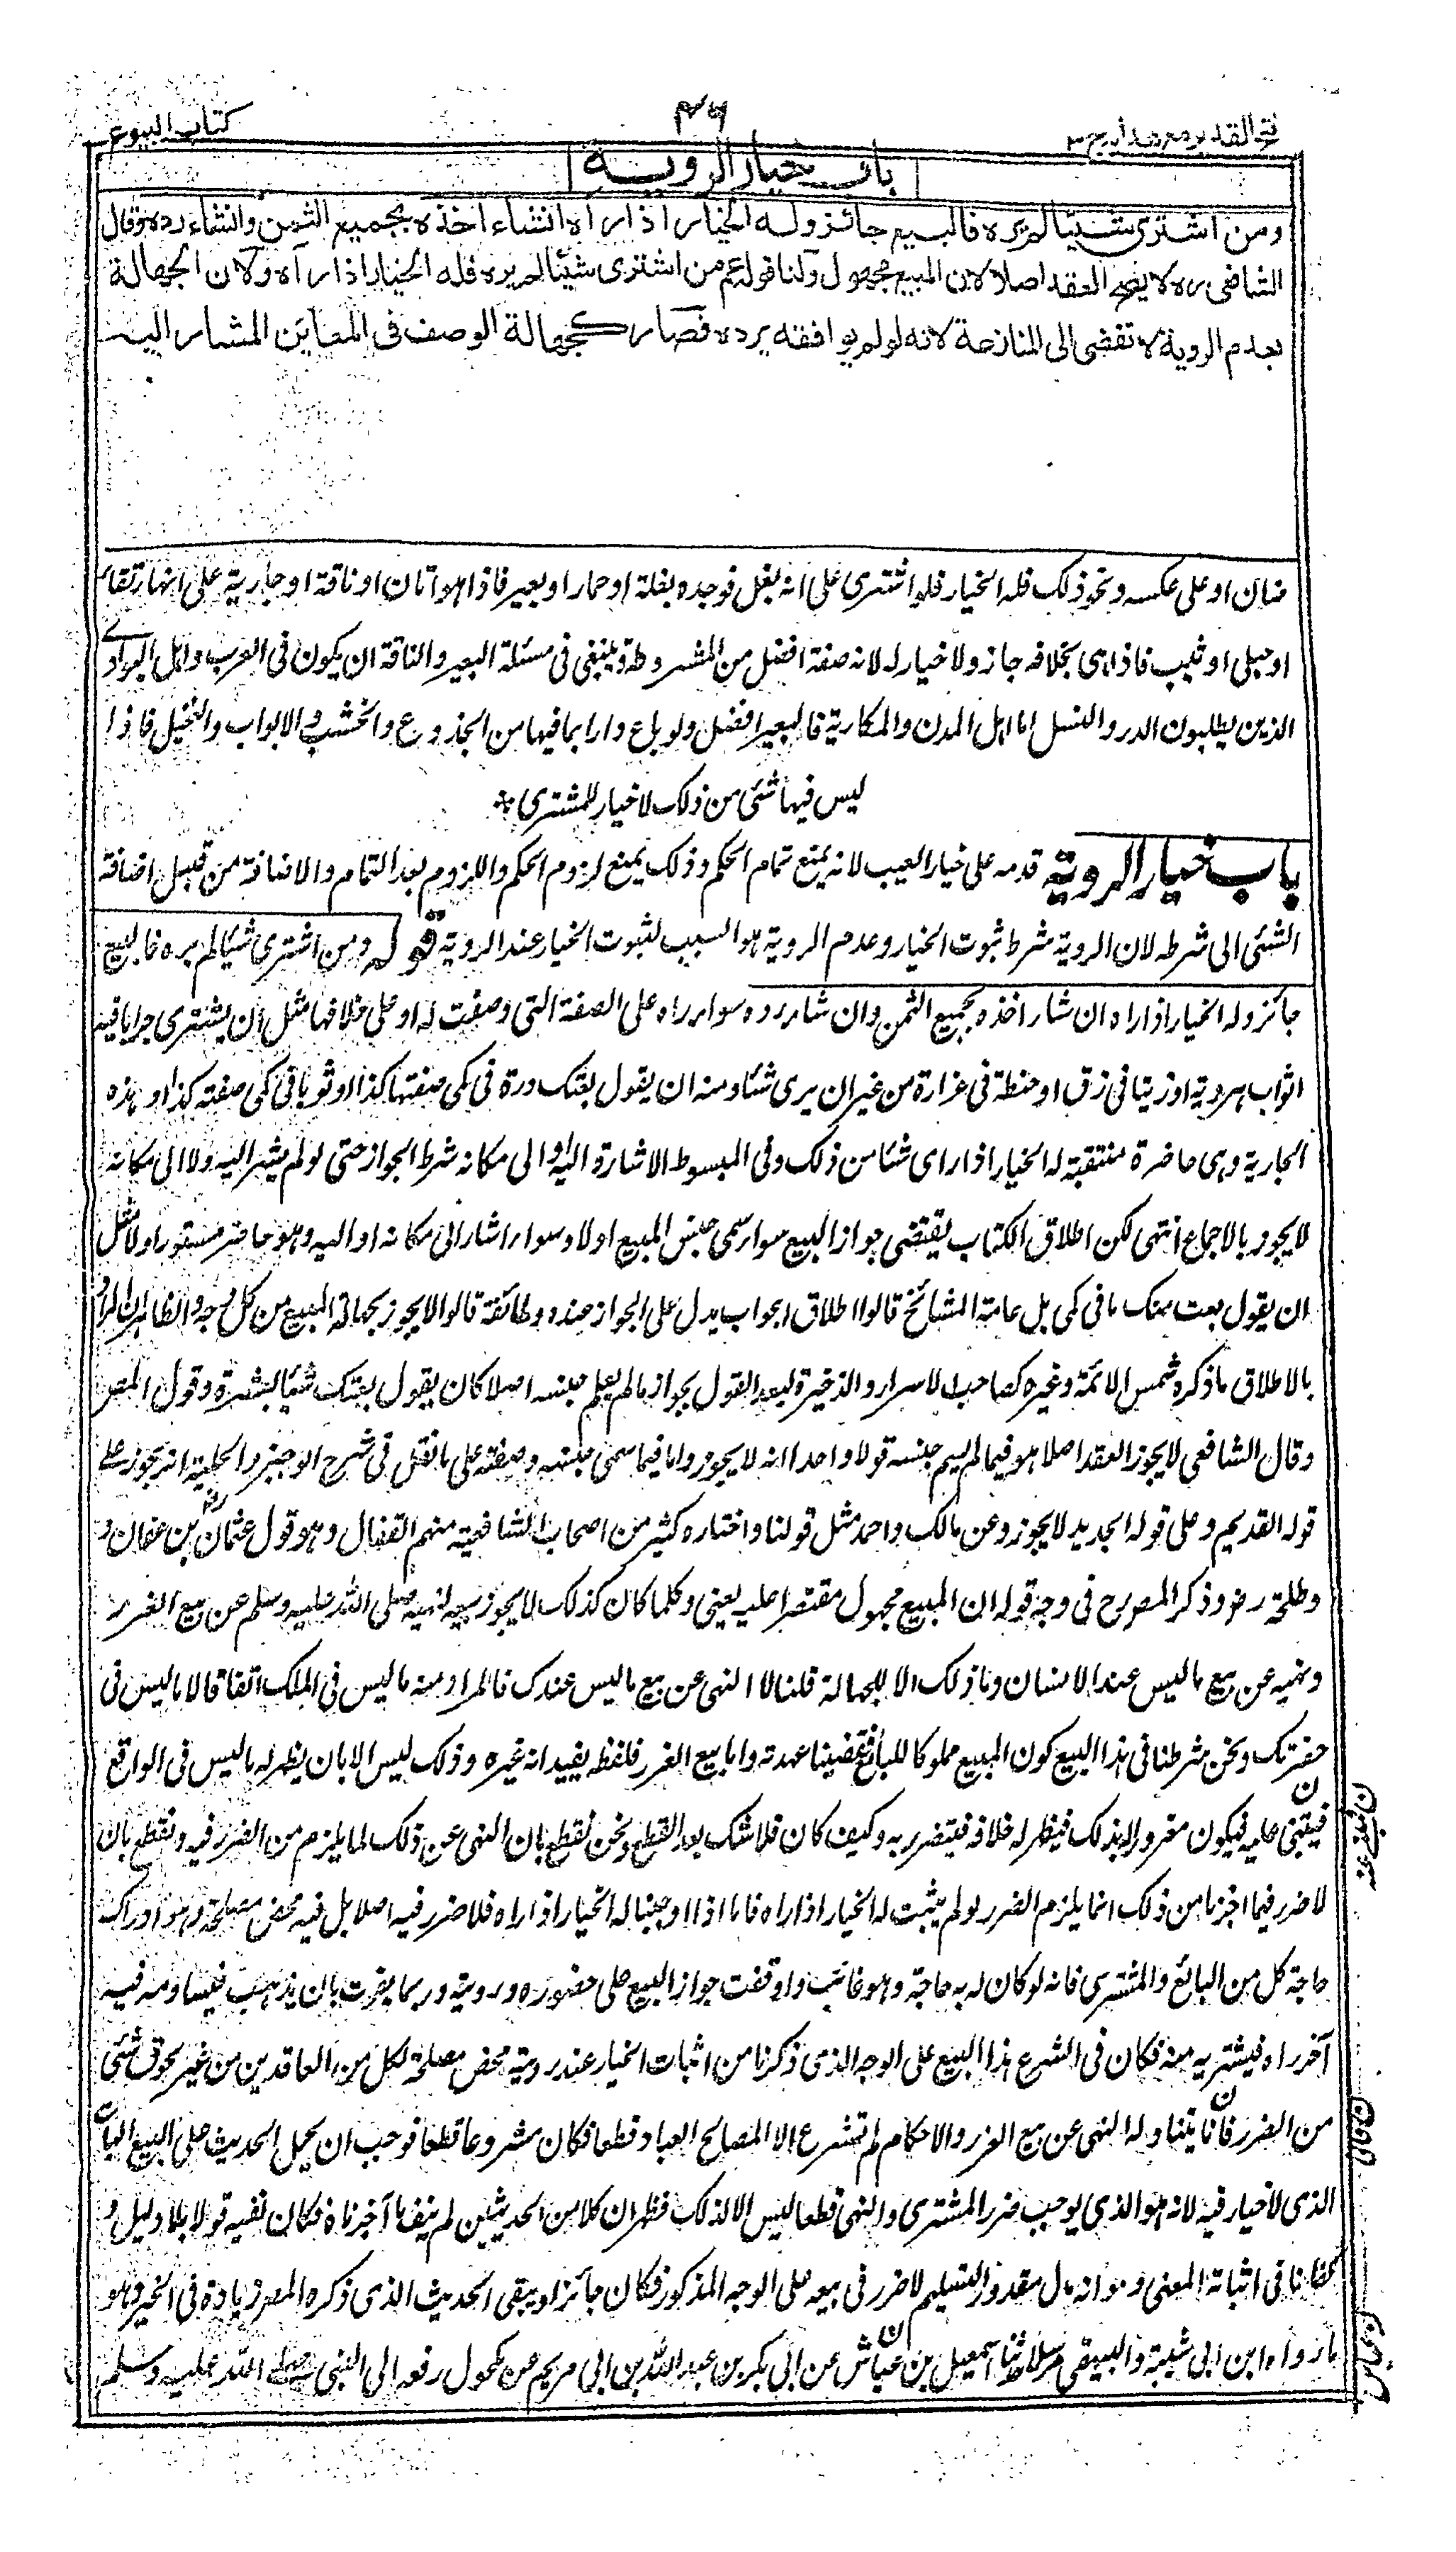 فتح القدير مع هداية ج ٣
٤٦
كتاب البيوع
باب خيار الروية
ومن اشترى شيئا لم يره فالبيع جائز وله الخيار اذا راه انشاء اخذه بجميع الثمن وانشاء رده وقال
الشافعى ره لا يصح العقد اصلا لان المبيع مجهول ولنا قوله عم من اشترى شيئا لم يره فله الخيار اذا رآه ولان الجهالة
بعدم الروية لا تفضى الى المنازعة لانه لو لم يوافقه يرده فصار كجهالة الوصف فى المعاين المشار اليه
ضان او على عكسه ونحو ذلك فله الخيار فلو اشترى على انه بغل فوجده بغلة او حمار او بعير فاذا هو اتان او ناقة او جارية على انها رتقاء
او حبلى او ثيب فاذا هى بخلافه جاز ولا خيار له لانه صفة افضل من المشروطة وينبغى فى مسئلة البعير والناقة ان يكون فى العرب واهل البوادے
الذين يطلبون الدر والنسل اما اهل المدن والمكارية فالبعير افضل ولو باع دارا بما فيها من الجذوع والخشب والابواب والنخيل فاذا
ليس فيها شئى من ذلك لا خيار للمشترى
باب خيار الروية قدمه على خيار العيب لانه يمنع تمام الحكم وذلك يمنع لزوم الحكم واللزوم بعد التمام والاضافة من قبيل اضافة
الشئى الى شرطه لان الروية شرط ثبوت الخيار وعدم الروية هو السبب لثبوت الخيار عند الروية قوله ومن اشترى شيئا لم يره فالبيع
جائز وله الخيار اذا راه ان شاء اخذه بجميع الثمن وان شاء رده سواء راه على الصفة التى وصفت له او على خلافها مثل ان يشترى جرابا فيه
اثواب هروية او زيتا فى زق او حنطة فى غرارة من غير ان يرى شيئا ومنه ان يقول بعتك درة فى كمى صفتها كذا او ثوبا فى كمى صفته كذا او هذه
الجارية وهى حاضرة منتقبة له الخيار اذا راى شيئا من ذلك وفى المبسوط الاشارة اليه او الى مكانه شرط الجواز حتى لو لم يشر اليه ولا الى مكانه
لا يجوز بالاجماع انتهى لكن اطلاق الكتاب يقتضى جواز البيع سواء سمى جنس المبيع اولا وسواء اشار الى مكانه او اليه وهو حاضر مستور اولا مثل
ان يقول بعت منك ما فى كمى بل عامة المشائخ قالوا اطلاق الجواب يدل على الجواز عنده وطائفة قالوا لا يجوز بجهالة المبيع من كل وجه والظاهر ان المراد
بالاطلاق ما ذكره شمس الائمة وغيره كصاحب الاسرار والذخيرة لبعد القول بجواز ما لم يعلم جنسه اصلا كان يقول بعتك شيئا بعشرة وقول المصر
وقال الشافعى لا يجوز العقد اصلا هو فيما لم يسم جنسه قولا واحدا انه لا يجوز واما فيما سمى جنسه وصفته على ما نقل فى شرح الوجيز والحلية انه يجوز على
قوله القديم وعلى قوله الجديد لا يجوز وعن مالك واحمد مثل قولنا واختاره كثير من اصحاب الشافعية منهم القفال وهو قول عثمان رض بن عفان و
وطلحة رض وذكر المصرح فى وجه قوله ان المبيع مجهول مقتصرا عليه يعنى وكلما كان كذلك لا يجوز بيعه لنهيه صلى الله عليه وسلم عن بيع الغرر
ونهيه عن بيع ما ليس عند الانسان وما ذلك الا للجهالة قلنا لا النهى عن بيع ما ليس عندك فالمراد منه ما ليس فى الملك اتفاقا لا ما ليس فى
حضرتك ونحن شرطنا فى هذا البيع كون المبيع مملوكا للبائع فقضينا عهدته واما بيع الغرر فلفظه يفيد انه غيره وذلك ليس الا بان يظهر له ما ليس فى الواقع
فيبتنى عليه فيكون مغرورا بذلك فيظهر له خلافه فيتضرر به وكيف كان فلا شك بعد القطع ونحن نقطع بان النهى عن ذلك لما يلزم من الضرر فيه ونقطع بان
لا ضرر فيما اجزنا من ذلك انما يلزم الضرر لو لم يثبت له الخيار اذا راه فاما اذا اوجبنا له الخيار اذا راه فلا ضرر فيه اصلا بل فيه محض مصلحة وهو ادراك
حاجة كل من البائع والمشترى فانه لو كان له به حاجة وهو غائب واوقفت جواز البيع على حضوره ورويته وربما يفوت بان يذهب فيساومه فيه
آخر راه فيشتريه منه فكان فى الشرع هذا البيع على الوجه الذى ذكرنا من اثبات الخيار عند روية محض مصلحة لكل من العاقدين من غير لحوق شئى
من الضرر فانا يتناوله النهى عن بيع الغرر والاحكام لم تشرع الا المصالح العباد قطعا فكان مشروعا قطعا فوجب ان يحمل الحديث على البيع البات
الذى لا خيار فيه لانه هو الذى يوجب ضرر المشترى والنهى قطعا ليس الا لذلك فظهر ان كلا من الحديثين لم ينف ما آجزناه فكان نفيه قولا بلا دليل و
كفانا فى اثباته المعنى وهو انه مال مقدور التسليم لا ضرر فى بيعه على الوجه المذكور فكان جائزا ويبقى الحديث الذى ذكره المصر زيادة فى الخير وهو
ما رواه ابن ابى شيبة والبيهقى مرسلا ثنا اسمعيل بن عياش عن ابى بكر بن عبد الله بن ابى مريم عن مكحول رفعه الى النبى صلے الله عليه وسلم